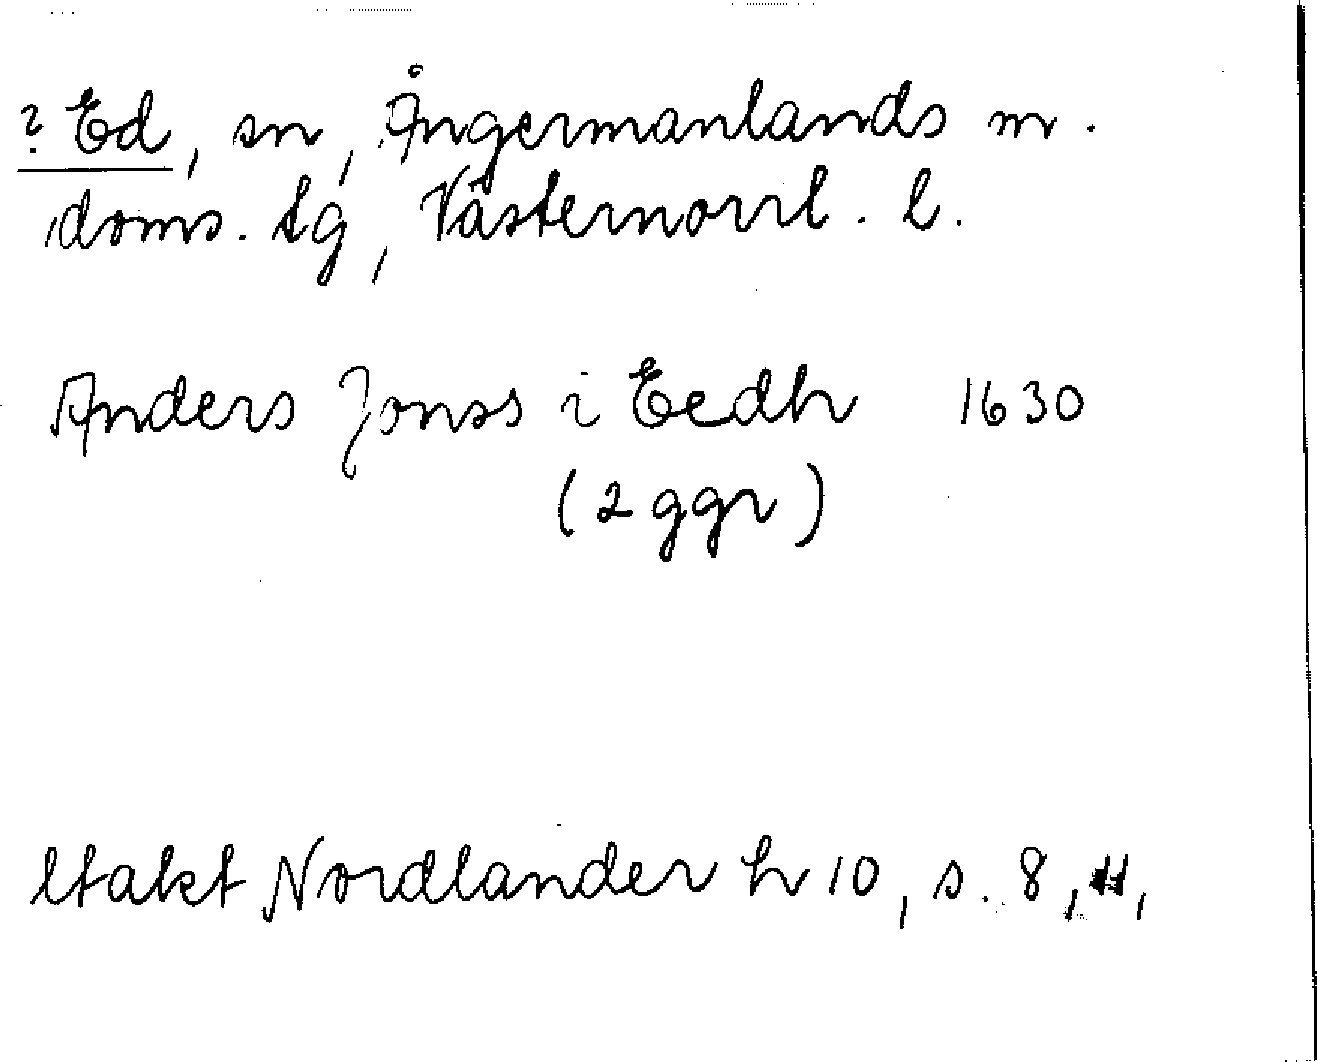 ? Ed, sn, Ångermanlands m.
doms. tg, Västernorrl. l.
Anders Jonss i Eedh 1630
(2 ggr)
ltakt Nordlander h 10, s. 8, 11,